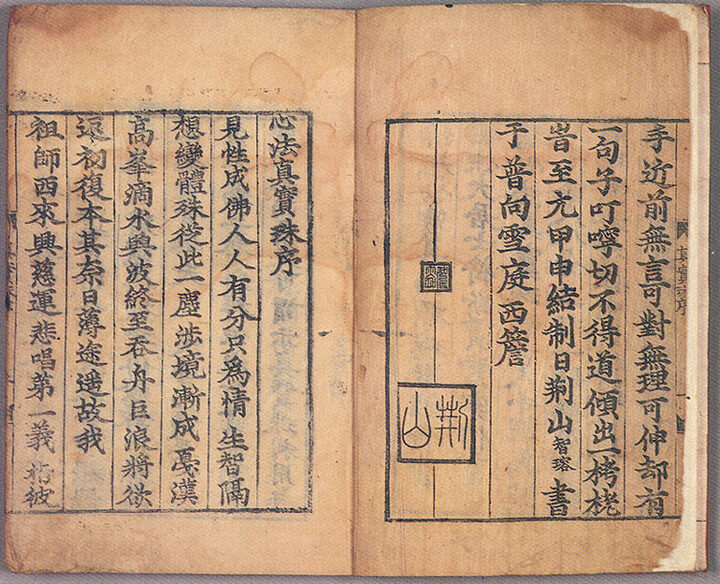 手近前無言可對無理可伸却有
一句子叮嚀切不得道傾出一栲栳
旹至元甲申結制日荊山智瑢書
于普向雪庭西簷
荊山
真實珠序
心法真實珠序
見性成佛人人有分只為情生智隔
想變體殊從此一塵涉境漸成戛漢
高峯滴水與波終至吞舟巨浪將欲
返初復本其奈日薄途遥故我
祖師西來興慈運悲唱第一義指彼